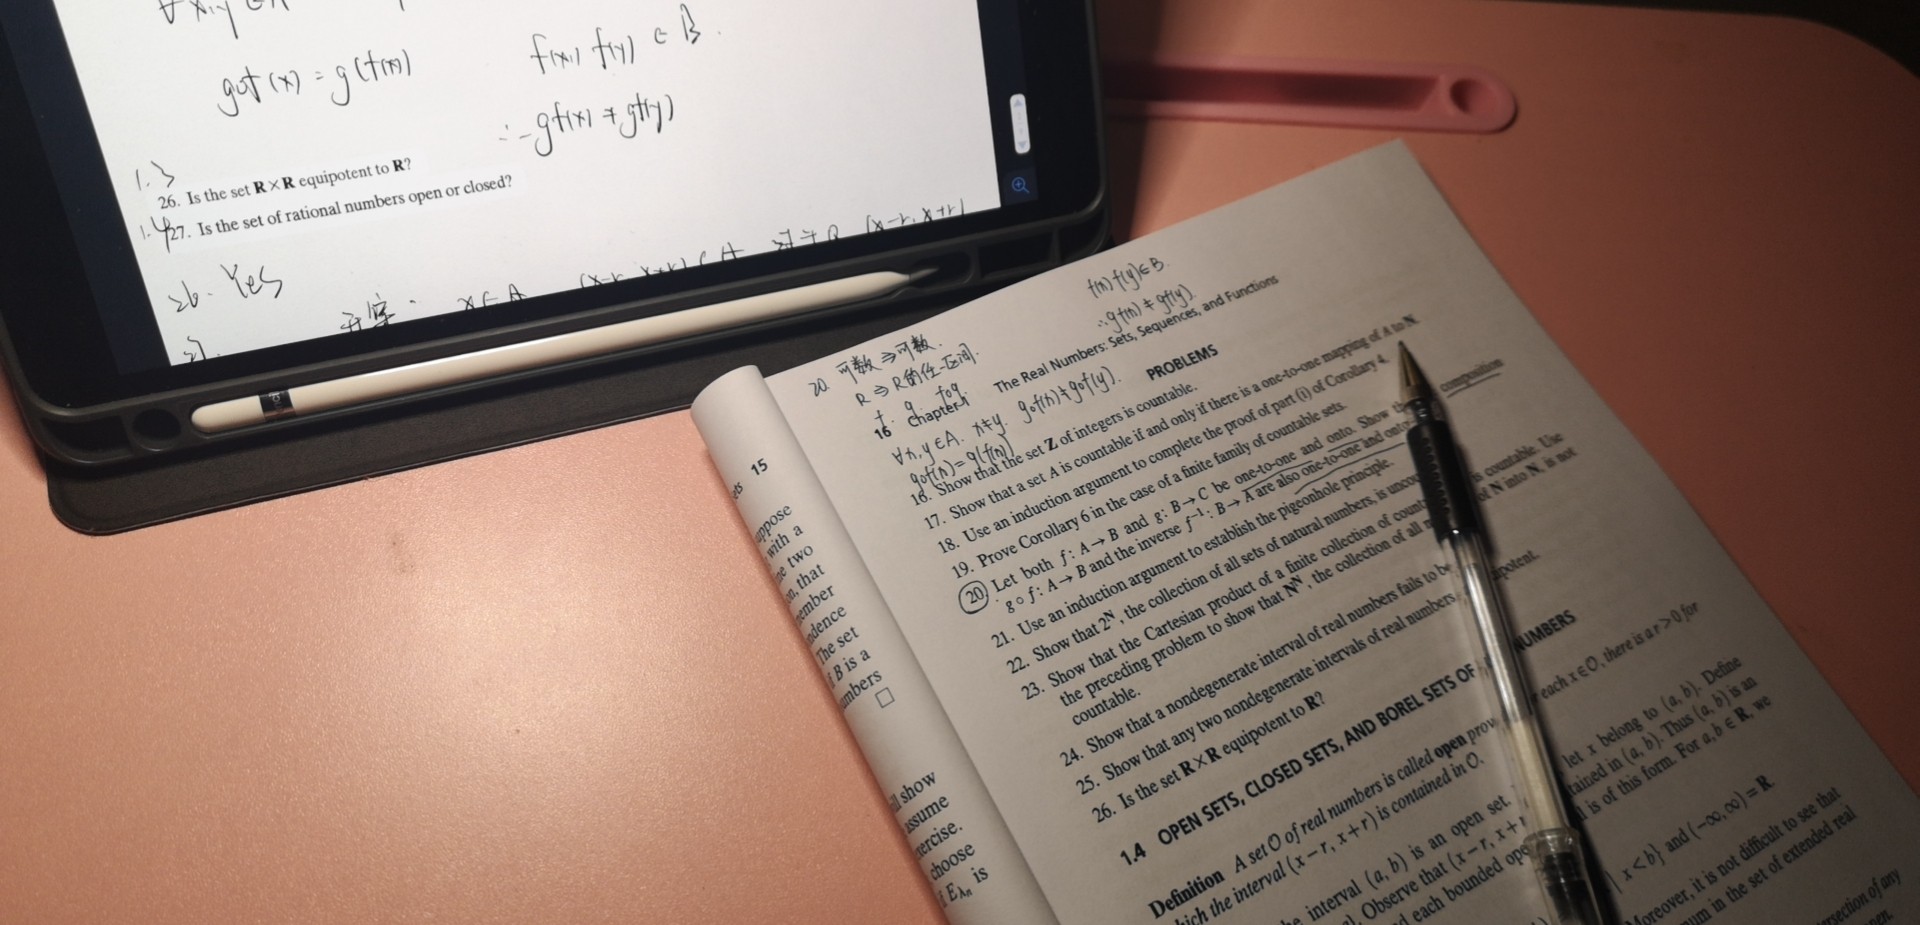 gof(x) = g(f(x))
f(x), f(y) ∈ B.
∴ gf(x) ≠ gf(y)
1.3
26. Is the set R×R equipotent to R?
1.4
27. Is the set of rational numbers open or closed?
26. Yes
开集: x∈A
27.
f(x) f(y)∈B.
∴ gf(x) ≠ gf(y).
20. 可数 ⇒ 可数.
R ⇒ R的任一区间.
f. g fog
16 Chapter 1 The Real Numbers: Sets, Sequences, and Functions
∀x,y∈A. x≠y. gof(x)≠gof(y).
gof(x)=g(f(x))
PROBLEMS
16. Show that the set Z of integers is countable.
17. Show that a set A is countable if and only if there is a one-to-one mapping of A to N.
18. Use an induction argument to complete the proof of part (i) of Corollary 4.
19. Prove Corollary 6 in the case of a finite family of countable sets.
20. Let both f: A→B and g: B→C be one-to-one and onto. Show composition
g∘f: A→B and the inverse f⁻¹: B→A are also one-to-one and onto
21. Use an induction argument to establish the pigeonhole principle.
22. Show that 2ᴺ, the collection of all sets of natural numbers, is
23. Show that the Cartesian product of a finite collection of is countable. Use
the preceding problem to show that Nᴺ, the collection of all of N into N, is not
countable.
24. Show that a nondegenerate interval of real numbers fails to be
25. Show that any two nondegenerate intervals of real numbers
26. Is the set R×R equipotent to R?
1.4 OPEN SETS, CLOSED SETS, AND BOREL SETS OF NUMBERS
Definition A set O of real numbers is called open each x∈O, there is a r>0 for
which the interval (x−r, x+r) is contained in O.
interval (a, b) is an open set. let x belong to (a, b). Define
Observe that (x−r, x+r in (a, b). Thus (a, b) is an
each bounded is of this form. For a,b∈R, we
x<b} and (−∞,∞)=R.
Moreover, it is not difficult to see that
in the set of extended real
of any
15
with a
two
that
The set
B is a
□
show
choose
is